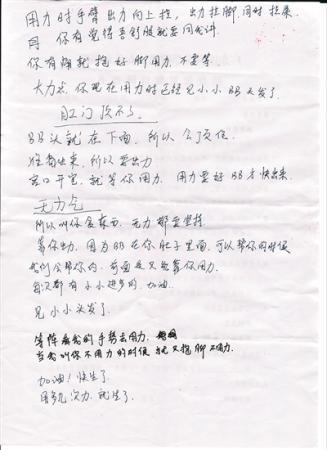 用力时手臂出力向上拉，出力拉脚，同时拉来
你有觉得吾舒服就要同我讲
你有痛就抱好脚用力，不要等
大力点，你现在用力时已经见小小BB头发了
肛门顶不了
BB头就在下面，所以会顶住
出来，所以要出力
宫口开完，就等你用力，用力要好BB才快出来
无力气
所以叫你食东西，无力都要坚持
等你出力，因为BB在你肚子里面，可以帮你的时候
我们会帮你的，要靠你用力
每次都有小小进步的，加油
见小小头发了
等阵看我的手势去用力
当我叫你不用力的时候 就抱脚不用力
加油！快生了
用多几次力，就生了